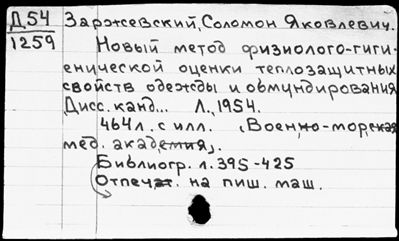 Д.54 Заржевский, Соломон Яковлевич.
1259 Новый метод физиолого-гиги-
енической оценки теплозащитных
свойств одежды и обмундирования
Дисс. канд... Л., 1954.
464 л. с илл. „Военно-морская
мед. академия„.
Библиогр. л. 395-425
Отпечат. на пиш. маш.